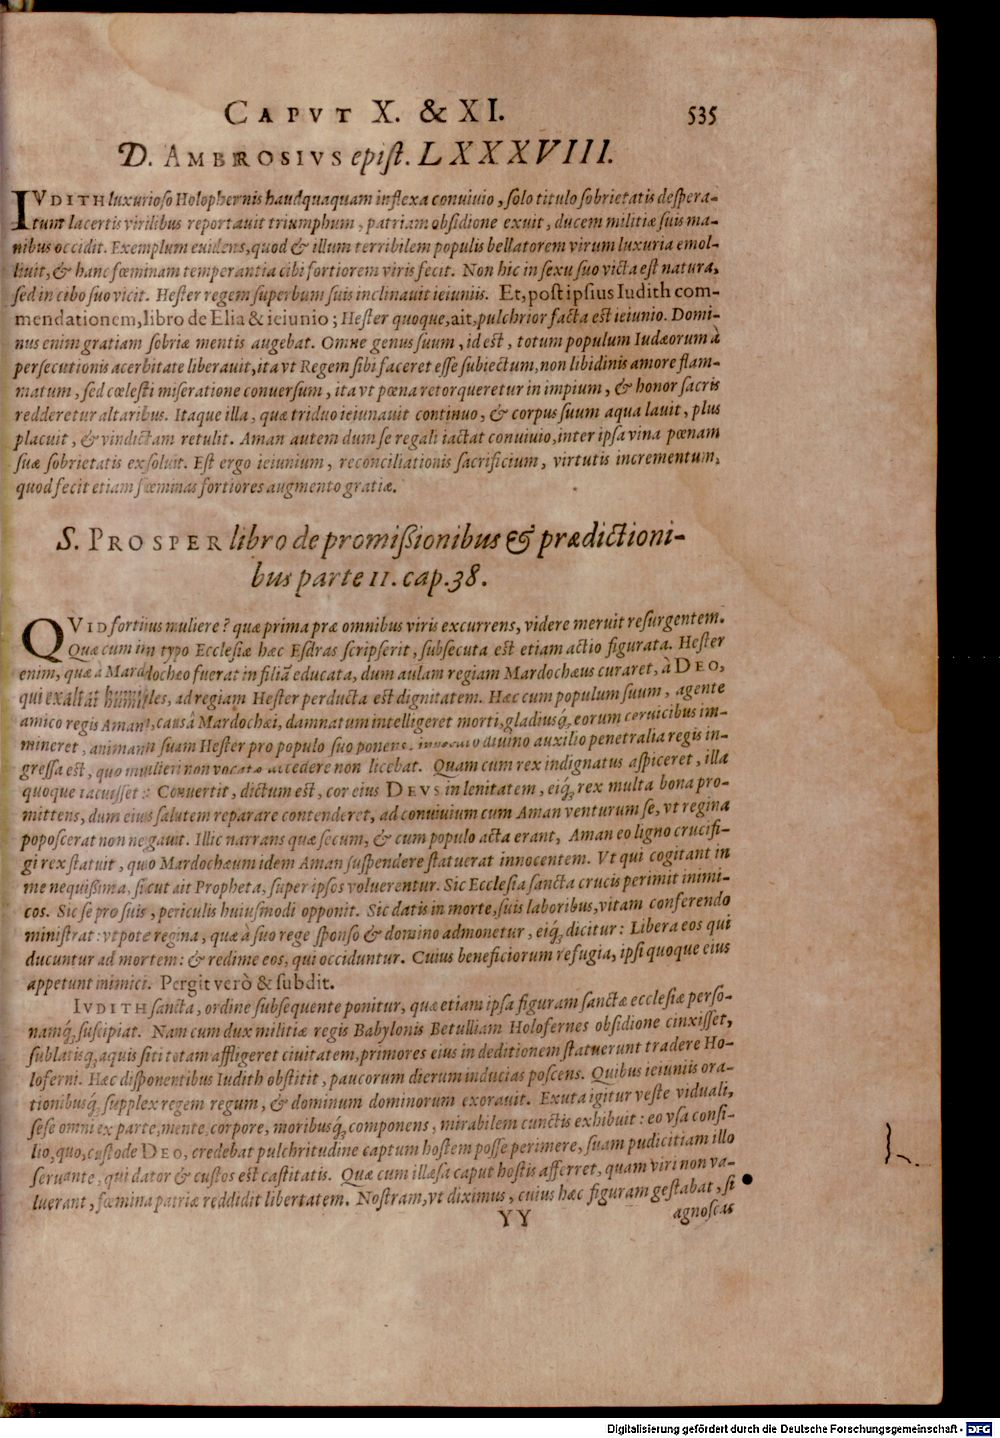 CAPVT X. & XI. 535
D. AMBROSIVS epist. LXXXVIII.
IVDITH luxurioso Holophernis haudquaquam inflexa conuiuio, solo titulo sobrietatis despera-
tum lacertis virilibus reportauit triumphum, patriam obsidione exuit, ducem militiæ suis ma-
nibus occidit. Exemplum euidens, quod & illum terribilem populis bellatorem virum luxuria emol-
liuit, & hanc fœminam temperantia cibi fortiorem viris fecit. Non hic in sexu suo victa est natura,
sed in cibo suo vicit. Hester regem superbum suis inclinauit ieiuniis. Et, post ipsius Iudith com-
mendationem, libro de Elia & ieiunio; Hester quoque, ait, pulchrior facta est ieiunio. Domi-
nus enim gratiam sobriæ mentis augebat. Omne genus suum, id est, totum populum Iudæorum à
persecutionis acerbitate liberauit, ita vt Regem sibi faceret esse subiectum, non libidinis amore flam-
matum, sed cœlesti miseratione conuersum, ita vt pœna retorqueretur in impium, & honor sacris
redderetur altaribus. Itaque illa, quæ triduo ieiunauit continuo, & corpus suum aqua lauit, plus
placuit, & vindictam retulit. Aman autem dum se regali iactat conuiuio, inter ipsa vina pœnam
suæ sobrietatis exsoluit. Est ergo ieiunium, reconciliationis sacrificium, virtutis incrementum,
quod fecit etiam fœminas fortiores augmento gratiæ.
S. PROSPER libro de promißionibus & prædictioni-
bus parte 11. cap. 38.
QVID fortius muliere? quæ prima præ omnibus viris excurrens, videre meruit resurgentem.
Quæ cum in typo Ecclesiæ hæc Esdras scripserit, subsecuta est etiam actio figurata. Hester
enim, quæ à Mardocheo fuerat in filiã educata, dum aulam regiam Mardochæus curaret, à DEO,
qui exaltat humiles, ad regiam Hester perducta est dignitatem. Hæc cum populum suum, agente
amico regis Aman, causâ Mardochæi, damnatum intelligeret morti, gladiusq́; eorum ceruicibus im-
mineret, animam suam Hester pro populo suo ponens, diuino auxilio penetralia regis in-
gressa est, quo mulieri non vocatæ accedere non licebat. Quam cum rex indignatus aspiceret, illa
quoque tacuisset: Conuertit, dictum est, cor eius DEVS in lenitatem, eiq́; rex multa bona pro-
mittens, dum eius salutem reparare contenderet, ad conuiuium cum Aman venturum se, vt regina
poposcerat non negauit. Illic narrans quæ secum, & cum populo acta erant, Aman eo ligno crucifi-
gi rex statuit, quo Mardochæum idem Aman suspendere statuerat innocentem. Vt qui cogitant in
me nequißima, sicut ait Propheta, super ipsos voluerentur. Sic Ecclesia sancta crucis perimit inimi-
cos. Sic se pro suis, periculis huiusmodi opponit. Sic datis in morte, suis laboribus, vitam conferendo
ministrat: vtpote regina, quæ à suo rege sponso & domino admonetur, eiq́; dicitur: Libera eos qui
ducuntur ad mortem: & redime eos, qui occiduntur. Cuius beneficiorum refugia, ipsi quoque eius
appetunt inimici. Pergit verò & subdit.
IVDITH sancta, ordine subsequente ponitur, quæ etiam ipsa figuram sanctæ ecclesiæ perso-
namq́; suscipiat. Nam cum dux militiæ regis Babylonis Betulliam Holofernes obsidione cinxisset,
sublatisq́; aquis siti totam affligeret ciuitatem, primores eius in deditionem statuerunt tradere Ho-
loferni. Hæc disponentibus Iudith obstitit, paucorum dierum inducias poscens. Quibus ieiuniis ora-
tionibusq́; supplex regem regum, & dominum dominorum exorauit. Exuta igitur veste viduali,
sese omni ex parte, mente, corpore, moribusq́; componens, mirabilem cunctis exhibuit: eo vsa consi-
lio, quo, custode DEO, credebat pulchritudine captum hostem posse perimere, suam pudicitiam illo
seruante, qui dator & custos est castitatis. Quæ cum illæsa caput hostis afferret, quam viri non va-
luerant, fœmina patriæ reddidit libertatem. Nostram, vt diximus, cuius hæc figuram gestabat, si
YY agnoscas
Digitalisierung gefördert durch die Deutsche Forschungsgemeinschaft - DFG